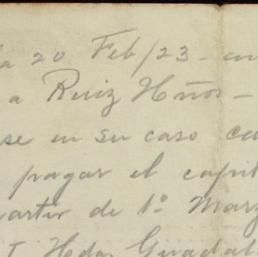 a 20 Feb/23 - en
a Ruiz Hños -
se en su caso ca
pagar el capit
partir de 1º Marz
Hda. Guadal